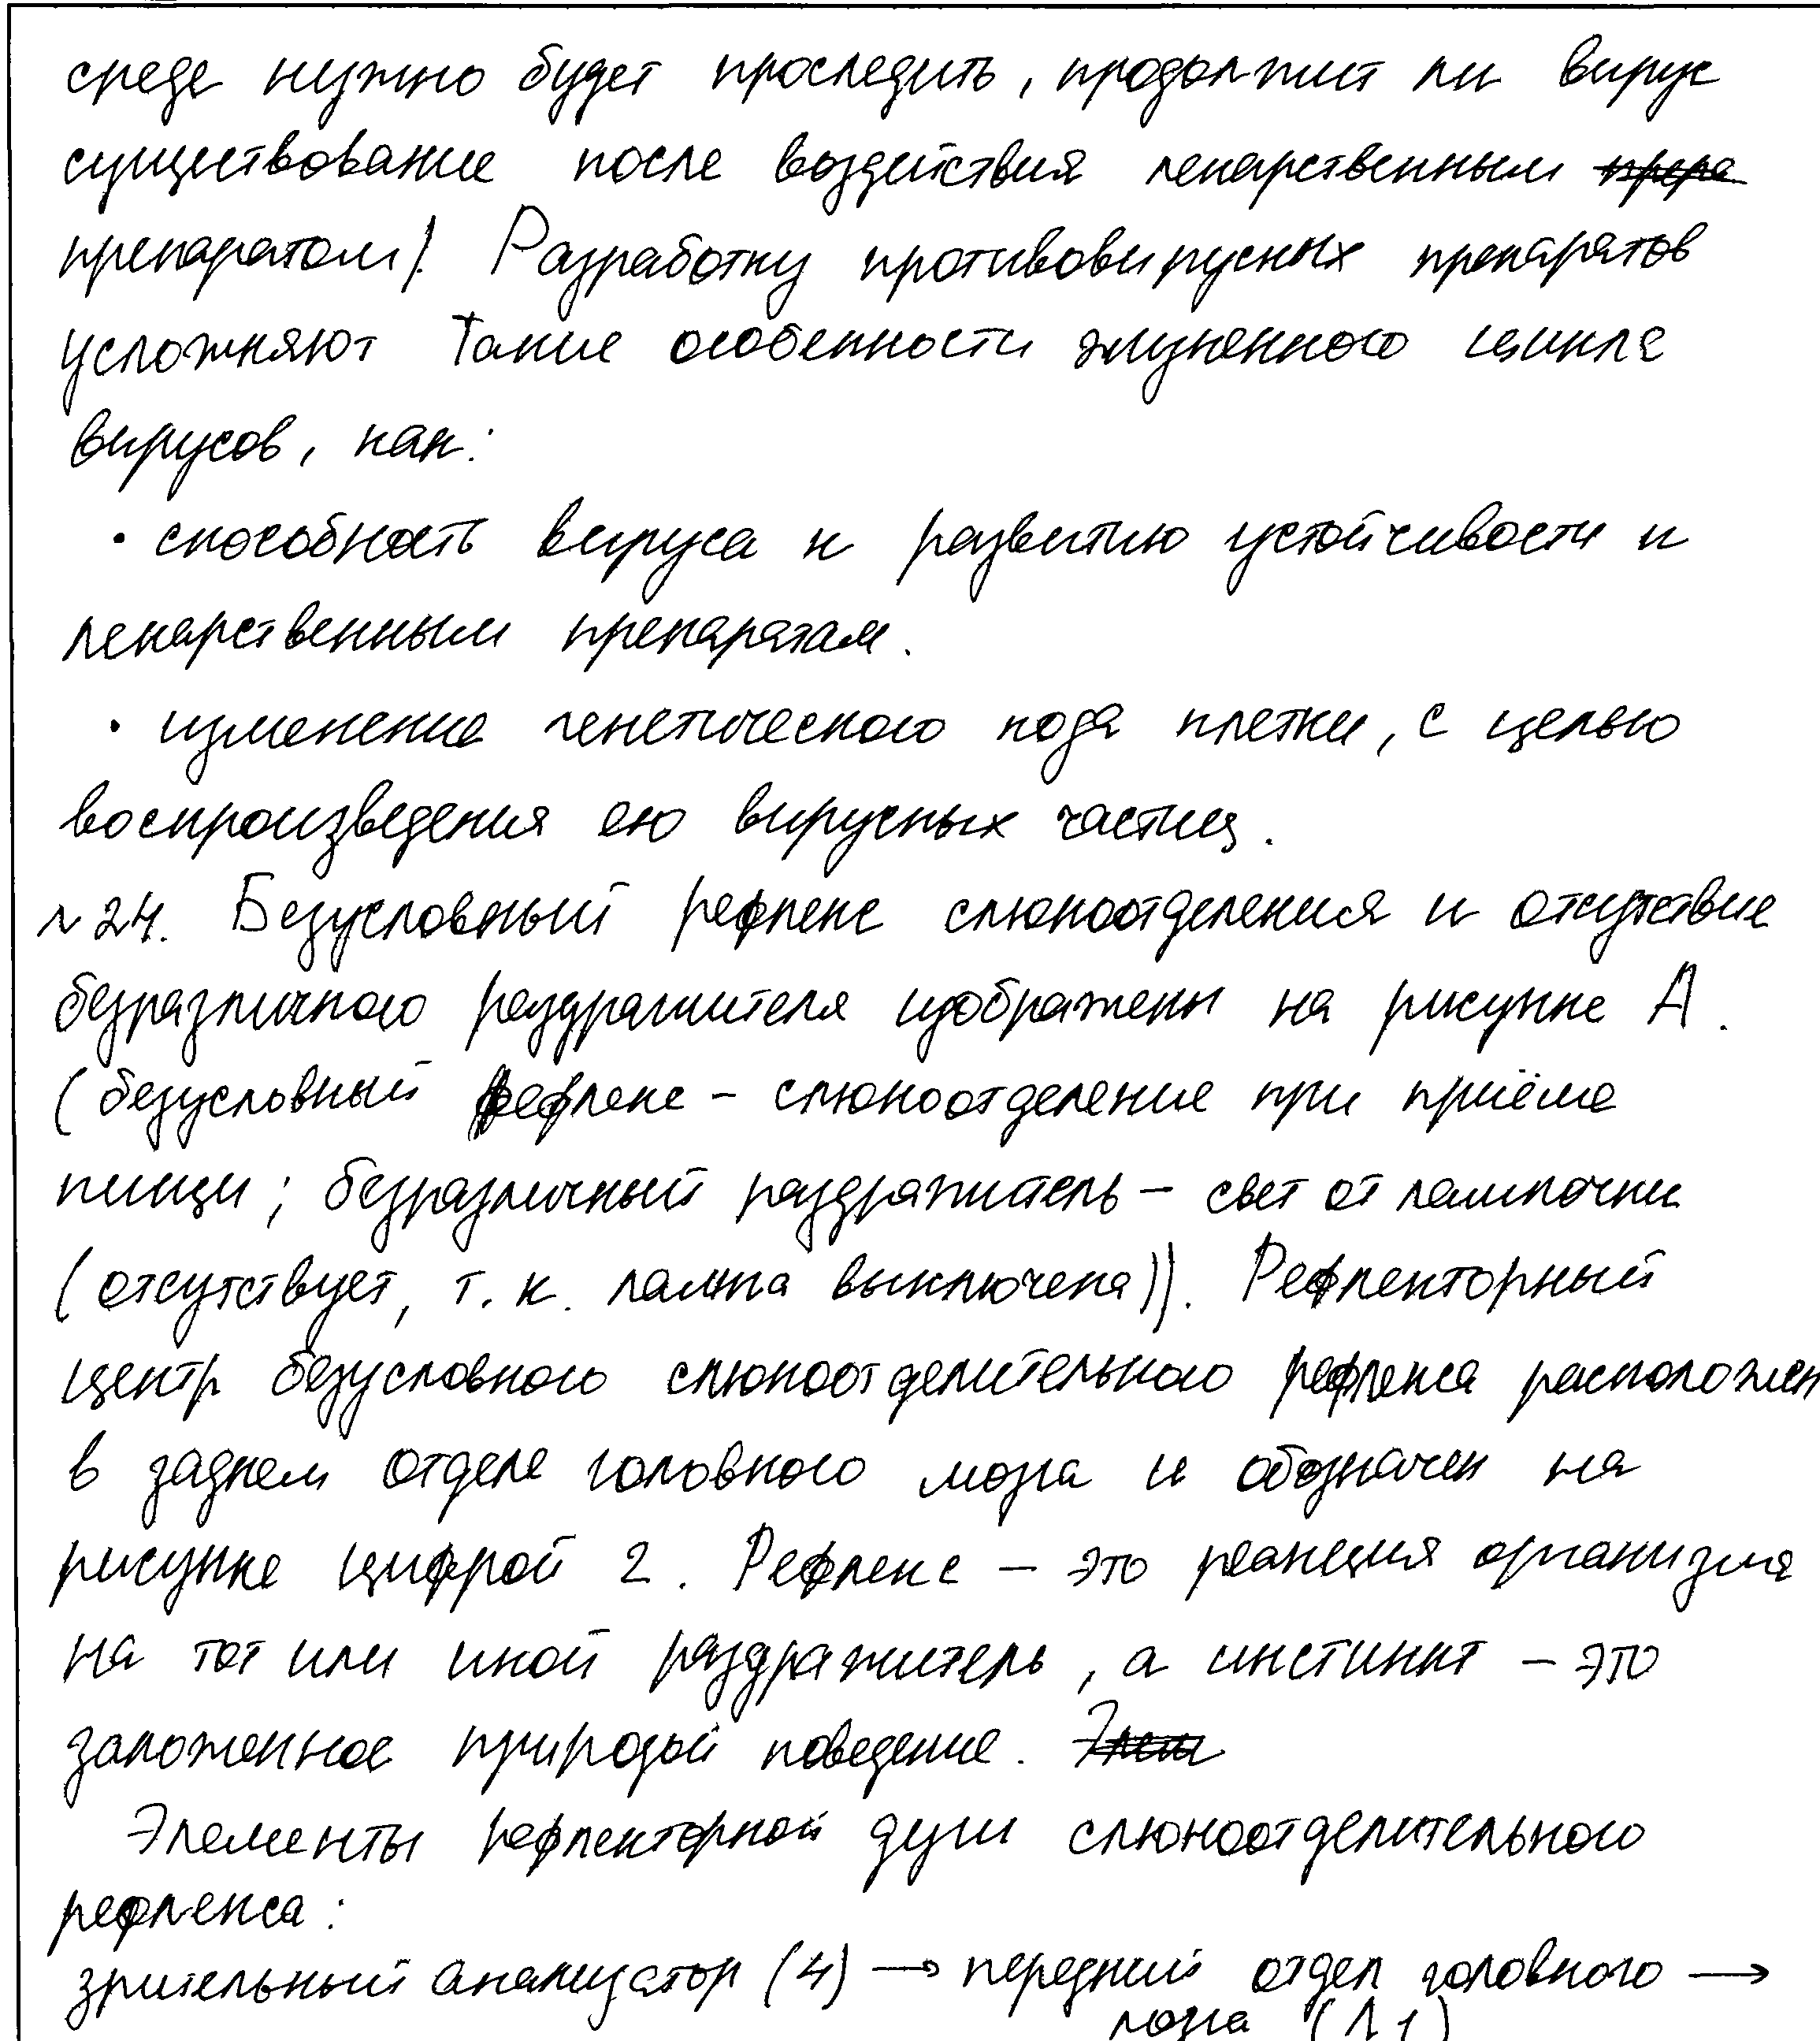 среде нужно будет проследить, продолжит ли вирус
существование после воздействия лекарственным препа
препаратом). Разработку противовирусных препаратов
усложняют такие особенности жизненного цикла
вирусов, как:
• способность вируса к развитию устойчивости к
лекарственным препаратам.
• изменение генетического кода клетки, с целью
воспроизведения ею вирусных частиц.
№24. Безусловный рефлекс слюноотделения и отсутствие
безразличного раздражителя изображены на рисунке А.
(безусловный рефлекс – слюноотделение при приёме
пищи; безразличный раздражитель – свет от лампочки
(отсутствует, т.к. лампа выключена)). Рефлекторный
центр безусловного слюноотделительного рефлекса расположен
в заднем отделе головного мозга и обозначен на
рисунке цифрой 2. Рефлекс – это реакция организма
на тот или иной раздражитель, а инстинкт – это
заложенное природой поведение. Элем
Элементы рефлекторной дуги слюноотделительного
рефлекса:
зрительный анализатор (4) → передний отдел головного →
мозга